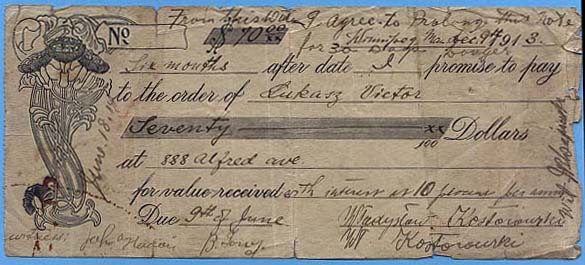 From this Date I agree to Prolong this Note
for 30 Days longer
No $70.00 Winnipeg Man Dec 9th 1913.
Six months after date I promise to pay
to the order of Lukasz Victor
Seventy xx/100 Dollars
at 888 Alfred ave
for value received with interest at 10 per annum
Due 9th of June Wladyslaw Kostorowski
W Kostorowski
witness: John
June 18